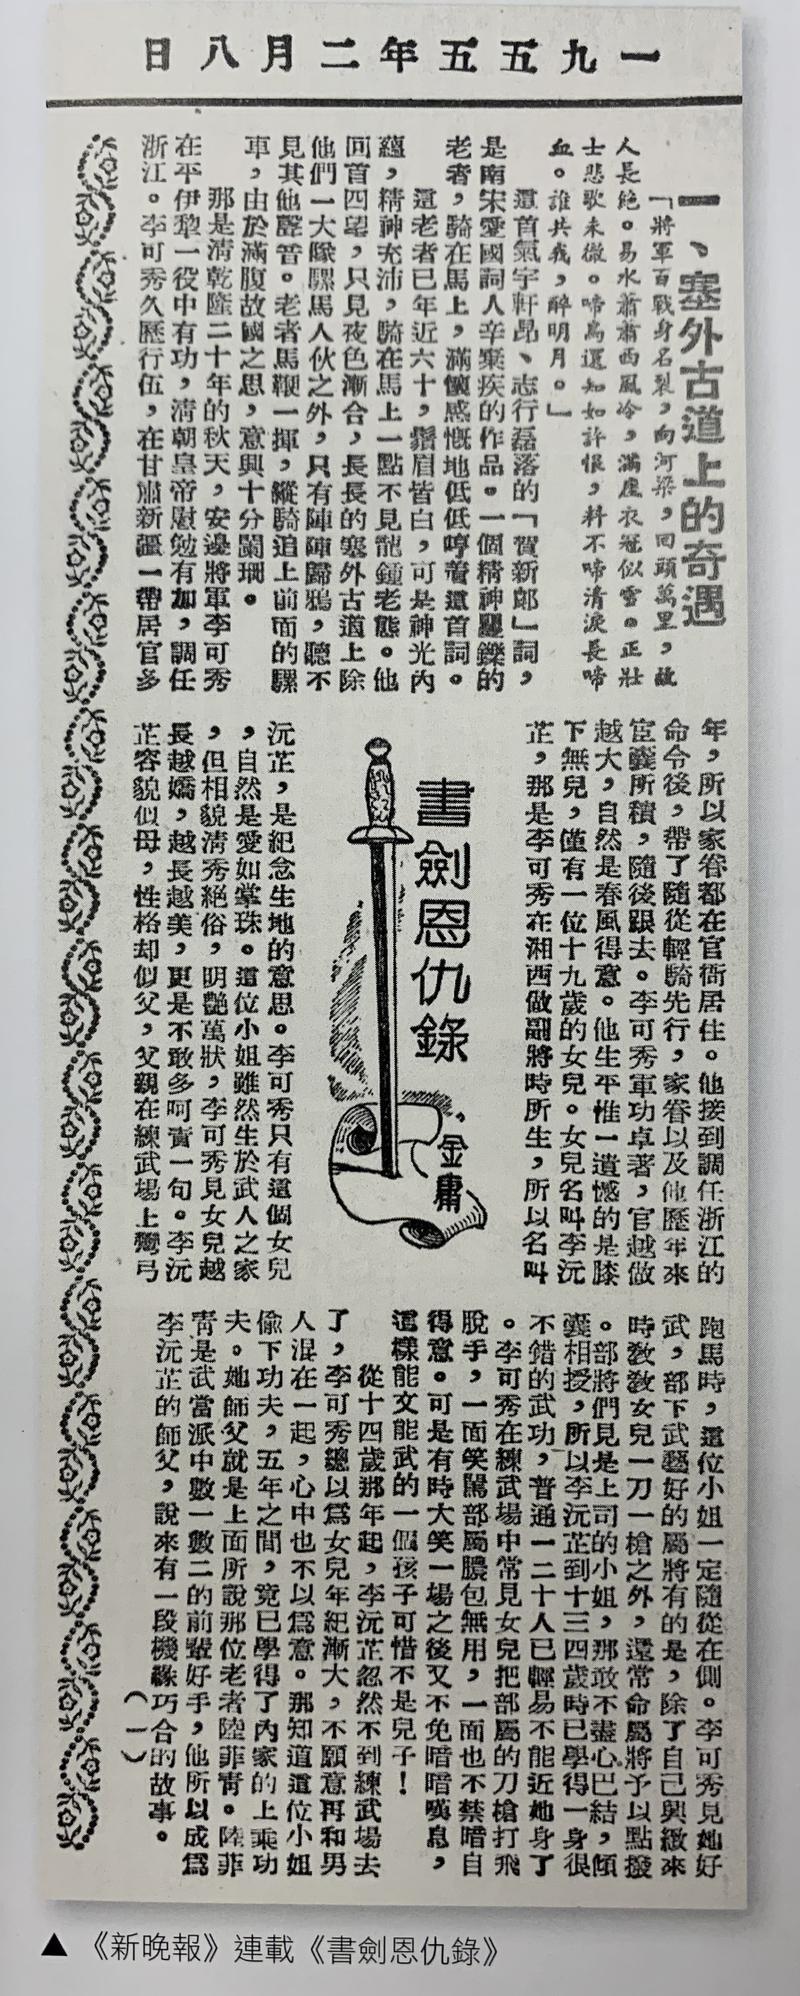 一九五五年二月八日
一、塞外古道上的奇遇
「將軍百戰身名裂，向河梁，回頭萬里，故
人長絕。易水蕭蕭西風冷，滿座衣冠似雪。正壯
士悲歌未徹。啼鳥還知如許恨，料不啼清淚長啼
血。誰共我，醉明月。」
這首氣宇軒昂、志行磊落的「賀新郎」詞，
是南宋愛國詞人辛棄疾的作品。一個精神矍鑠的
老者，騎在馬上，滿懷感慨地低低哼着這首詞。
這老者已年近六十，鬚眉皆白，可是神光內
蘊，精神充沛，騎在馬上一點不見龍鍾老態。他
回首四望，只見夜色漸合，長長的塞外古道上除
他們一大隊騾馬人伙之外，只有陣陣歸鴉，聽不
見其他聲音。老者馬鞭一揮，縱騎追上前面的騾
車，由於滿腹故國之思，意興十分闌珊。
那是清乾隆二十年的秋天，安邊將軍李可秀
在平伊犁一役中有功，清朝皇帝慰勉有加，調任
浙江。李可秀久歷行伍，在甘肅新疆一帶居官多
年，所以家眷都在官衙居住。他接到調任浙江的
命令後，帶了隨從輕騎先行，家眷以及他歷年來
宦囊所積，隨後跟去。李可秀軍功卓著，官越做
越大，自然是春風得意。他生平惟一遺憾的是膝
下無兒，僅有一位十九歲的女兒。女兒名叫李沅
芷，那是李可秀在湘西做副將時所生，所以名叫
書劍恩仇錄
、金庸
沅芷，是紀念生地的意思。李可秀只有這個女兒
，自然是愛如掌珠。這位小姐雖然生於武人之家
，但相貌清秀絕俗，明艷萬狀，李可秀見女兒越
長越嬌，越長越美，更是不敢多呵責一句。李沅
芷容貌似母，性格却似父，父親在練武場上彎弓
跑馬時，這位小姐一定隨從在側。李可秀見她好
武，部下武藝好的屬將有的是，除了自己興緻來
時敎敎女兒一刀一槍之外，還常命屬將予以點撥
。部將們見是上司的小姐，那敢不盡心巴結，傾
囊相授，所以李沅芷到十三四歲時已學得一身很
不錯的武功，普通一二十人已輕易不能近她身了
。李可秀在練武場中常見女兒把部屬的刀槍打飛
脫手，一面笑罵部屬膿包無用，一面也不禁暗自
得意。可是有時大笑一場之後又不免暗暗嘆息，
這樣能文能武的一個孩子可惜不是兒子！
從十四歲那年起，李沅芷忽然不到練武場去
了，李可秀總以爲女兒年紀漸大，不願意再和男
人混在一起，心中也不以爲意。那知道這位小姐
偸下功夫，五年之間，竟已學得了內家的上乘功
夫。她師父就是上面所說那位老者陸菲靑。陸菲
靑是武當派中數一數二的前輩好手，他所以成爲
李沅芷的師父，說來有一段機緣巧合的故事。
（一）
▲《新晚報》連載《書劍恩仇錄》